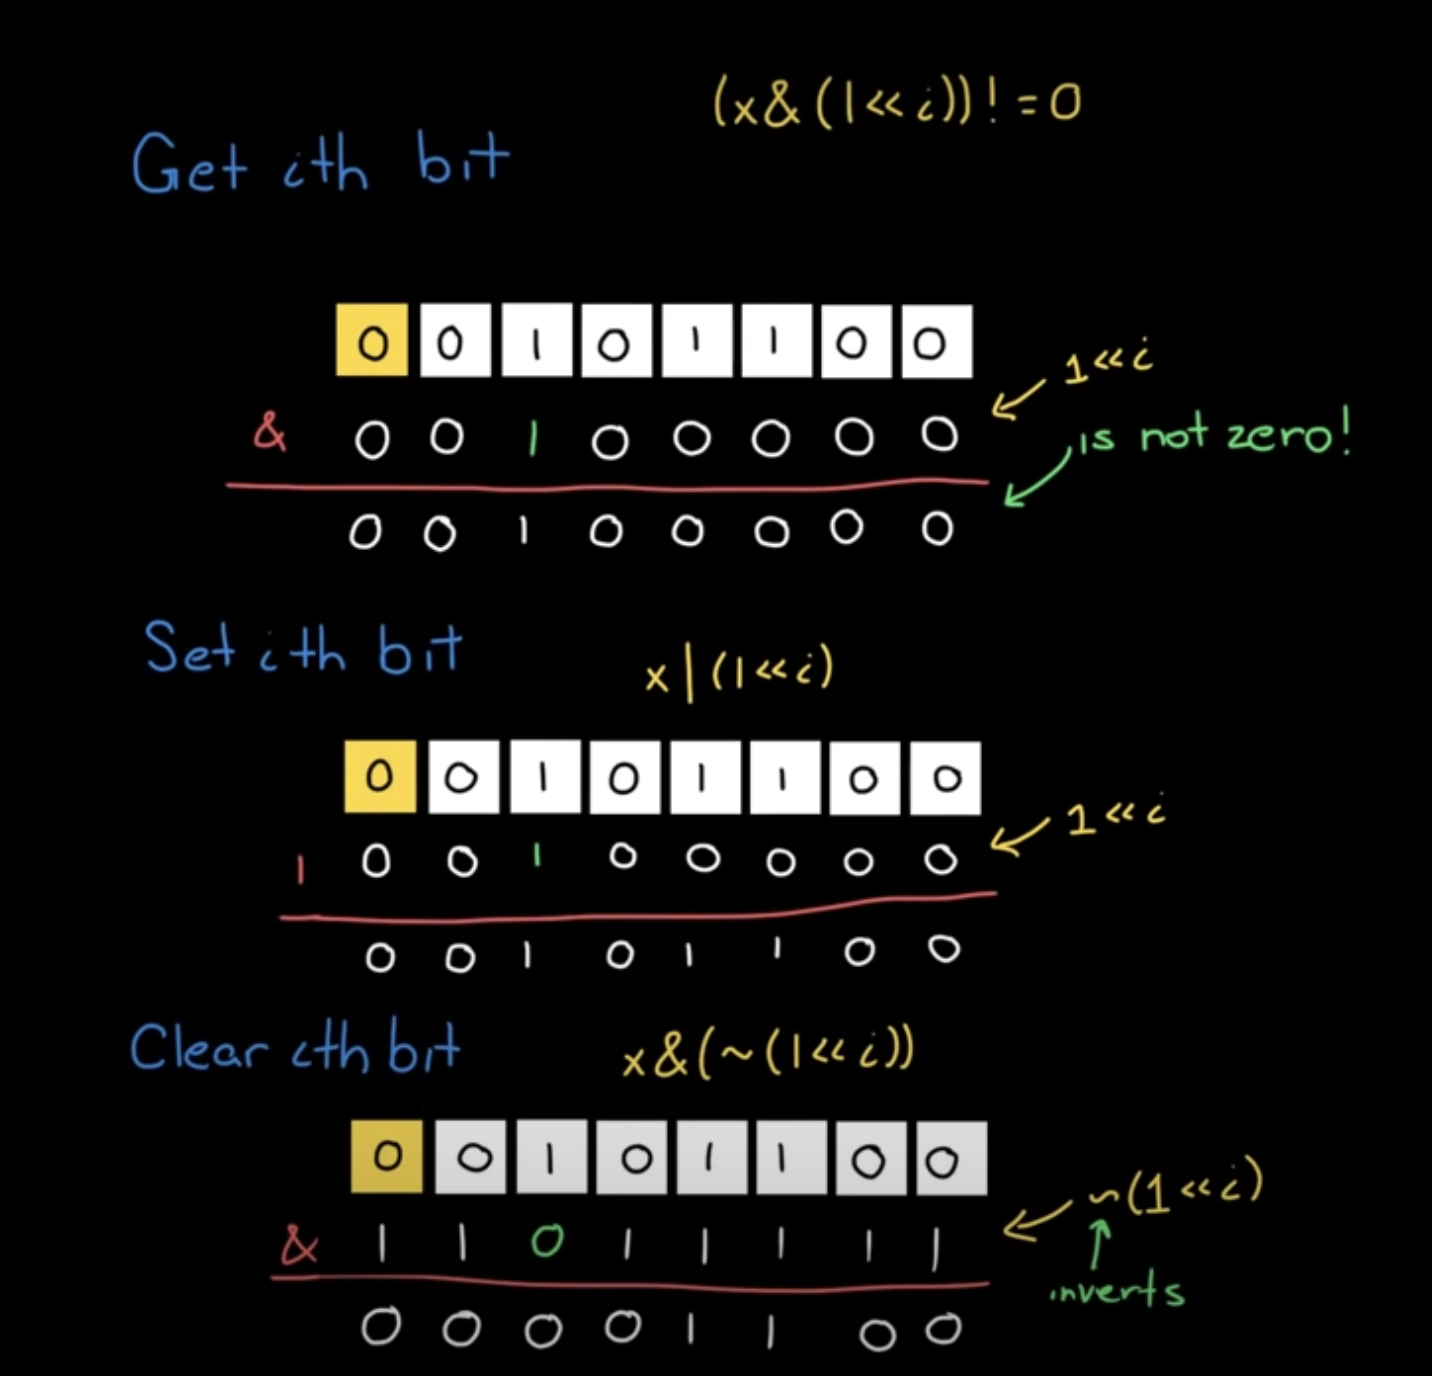 (x&(1<<i))!=0
Get ith bit
0 0 1 0 1 1 0 0
1<<i
& 0 0 1 0 0 0 0 0
is not zero!
0 0 1 0 0 0 0 0
Set ith bit
x|(1<<i)
0 0 1 0 1 1 0 0
1<<i
| 0 0 1 0 0 0 0 0
0 0 1 0 1 1 0 0
Clear ith bit
x&(~(1<<i))
0 0 1 0 1 1 0 0
~(1<<i)
& 1 1 0 1 1 1 1 1
inverts
0 0 0 0 1 1 0 0